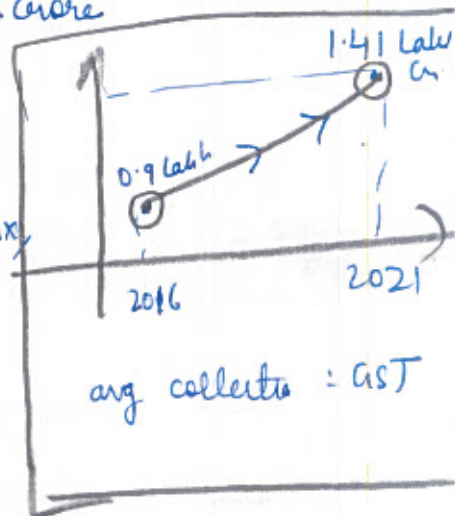 Crore
1.41 Lakh
Cr
0.9 Lakh
2016
2021
avg collectio : GST